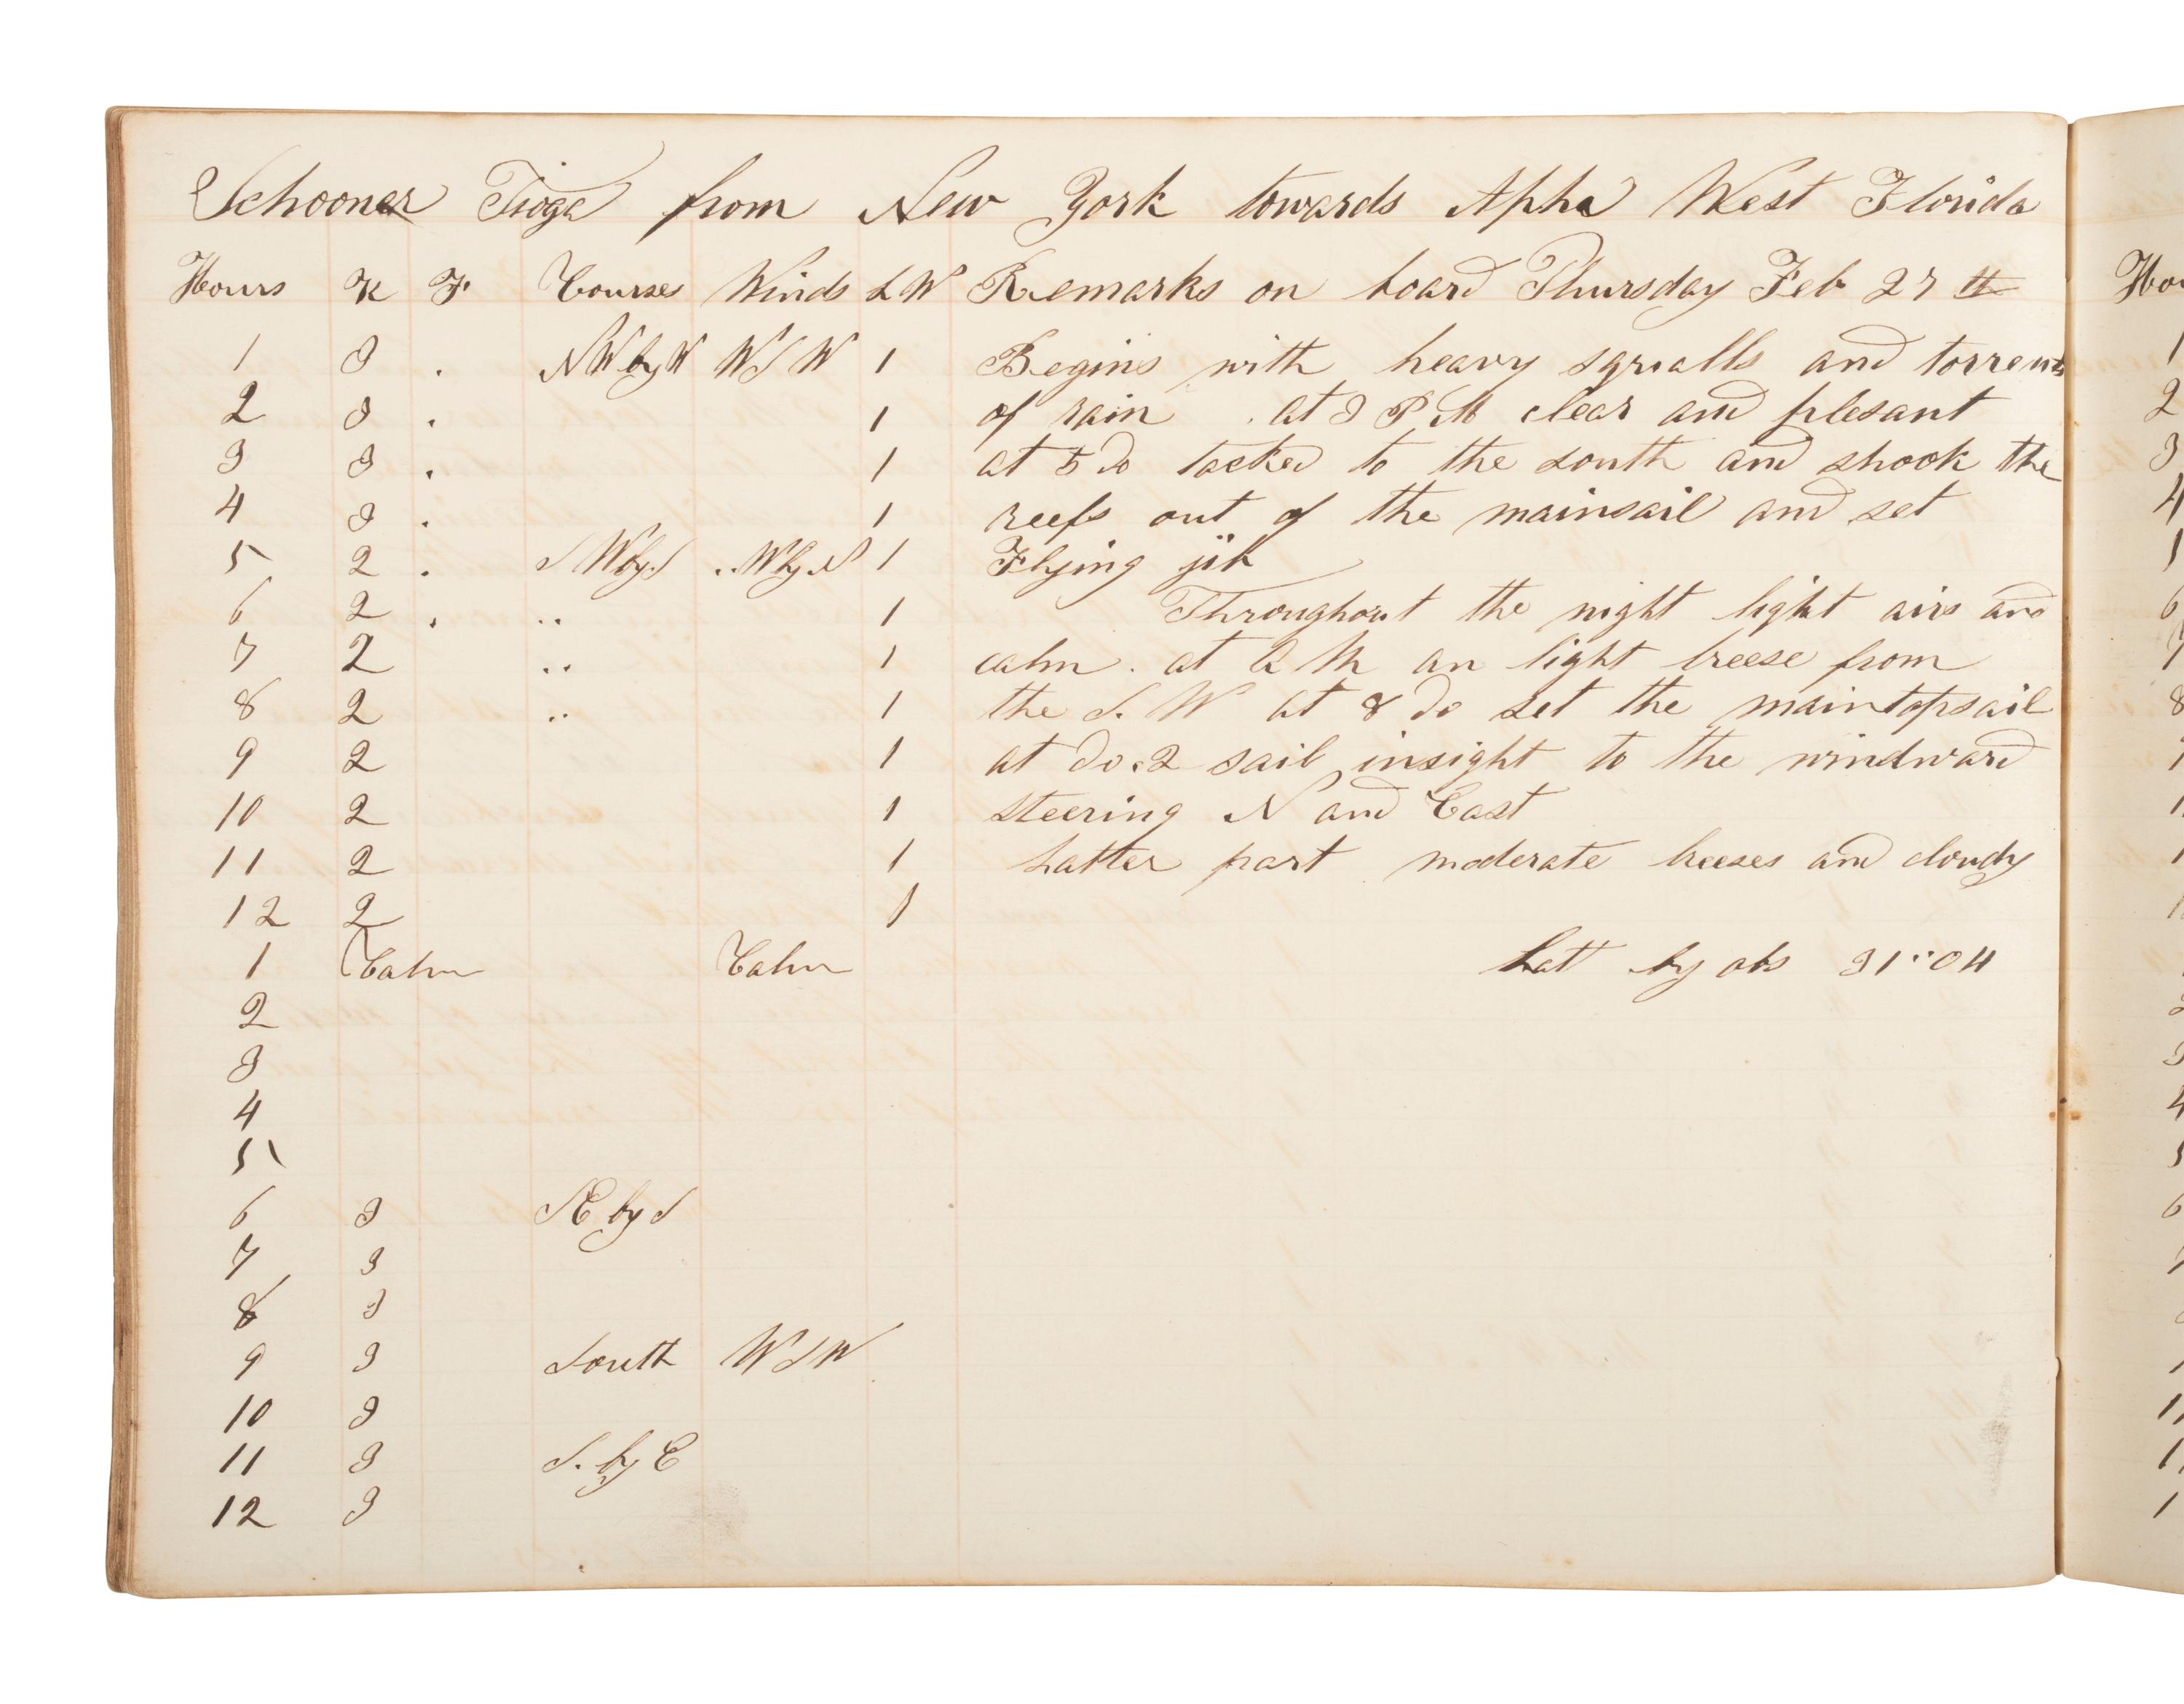 Schooner Tioga from New York towards Apha West Florida
Hours K F Courses Winds L W Remarks on board Thursday Feb 27 th
1 3 . NW by W W S W 1 Begins with heavy squalls and torrents
2 3 . 1 of rain . at 3 P M clear and plesant
3 3 . 1 at 5 do tacked to the south and shook the
4 3 . 1 reefs out of the mainsail and set
5 2 . S W by S .. W by N 1 Flying jib
6 2 . .. 1 Throughout the night light airs and
7 2 .. 1 calm . at A M an light breese from
8 2 .. 1 the S. W at 8 do set the maintopsail
9 2 1 at do. 2 sail insight to the windward
10 2 1 steering N and East
11 2 1 Latter part moderate breeses and cloudy
12 2 1
1 Calm Calm Latt by obs 31 " 04
2
3
4
5
6 3 S E by S
7 3
8 3
9 3 South W S W
10 3
11 3 S. by E
12 3
Ho
1
2
3
4
6
8
4
5
6